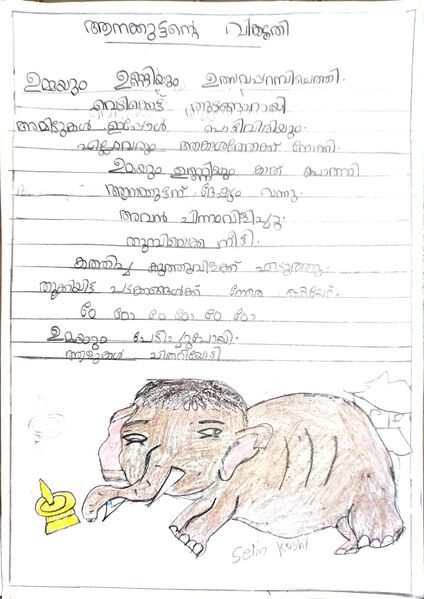 ആനക്കുട്ടന്റെ വികൃതി
ഉമ്മയും ഉണ്ണിയും ഉത്സവപറമ്പിലെത്തി.
വെടിക്കെട്ട് തുടങ്ങാറായി
അമിട്ടുകൾ ഇപ്പോൾ പൊട്ടിവിരിയും.
എല്ലാവരും ആകാശത്തേക്ക് നോക്കി.
ഉമയും ഉണ്ണിയും കാത് പൊത്തി
ആനക്കുട്ടന് ദേഷ്യം വന്നു.
അവൻ ചിന്നംവിളിച്ചു.
തുമ്പിക്കൈ നീട്ടി.
കത്തിച്ച കുത്തുവിളക്ക് എടുത്തു.
തൂക്കിയിട്ട പടക്കങ്ങൾക്ക് നേരെ
ഠേ ഠോ ഠേ ഠോ ഠേ ഠോ
ഉമയും പേടിച്ചുപോയി.
ആളുകൾ ചിതറിയോടി
Selin Koshi